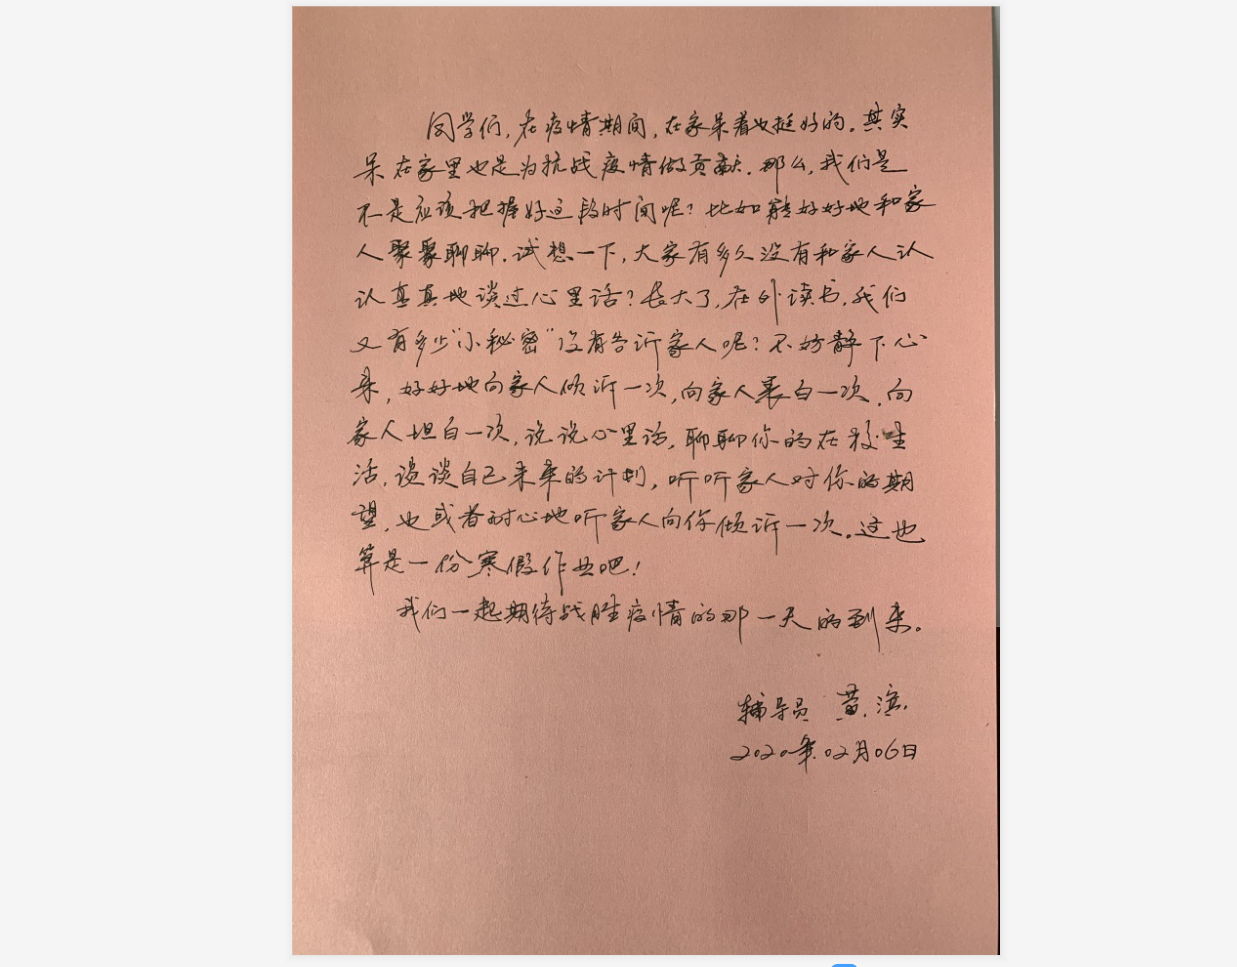 同学们,在疫情期间,在家呆着也挺好的。其实
呆在家里也是为抗战疫情做贡献。那么,我们是
不是应该把握好这段时间呢?比如好好地和家
人聚聚聊聊。试想一下,大家有多久没有和家人认
认真真地谈过心里话?长大了,在外读书,我们
又有多少“小秘密”没有告诉家人呢?不妨静下心
来,好好地向家人倾诉一次,向家人表白一次,向
家人坦白一次,说说心里话,聊聊你的在校生
活,谈谈自己未来的计划,听听家人对你的期
望,也或者耐心地听家人向你倾诉一次。这也
算是一份寒假作业吧!
我们一起期待战胜疫情的那一天的到来。
辅导员 黄
2020年02月06日